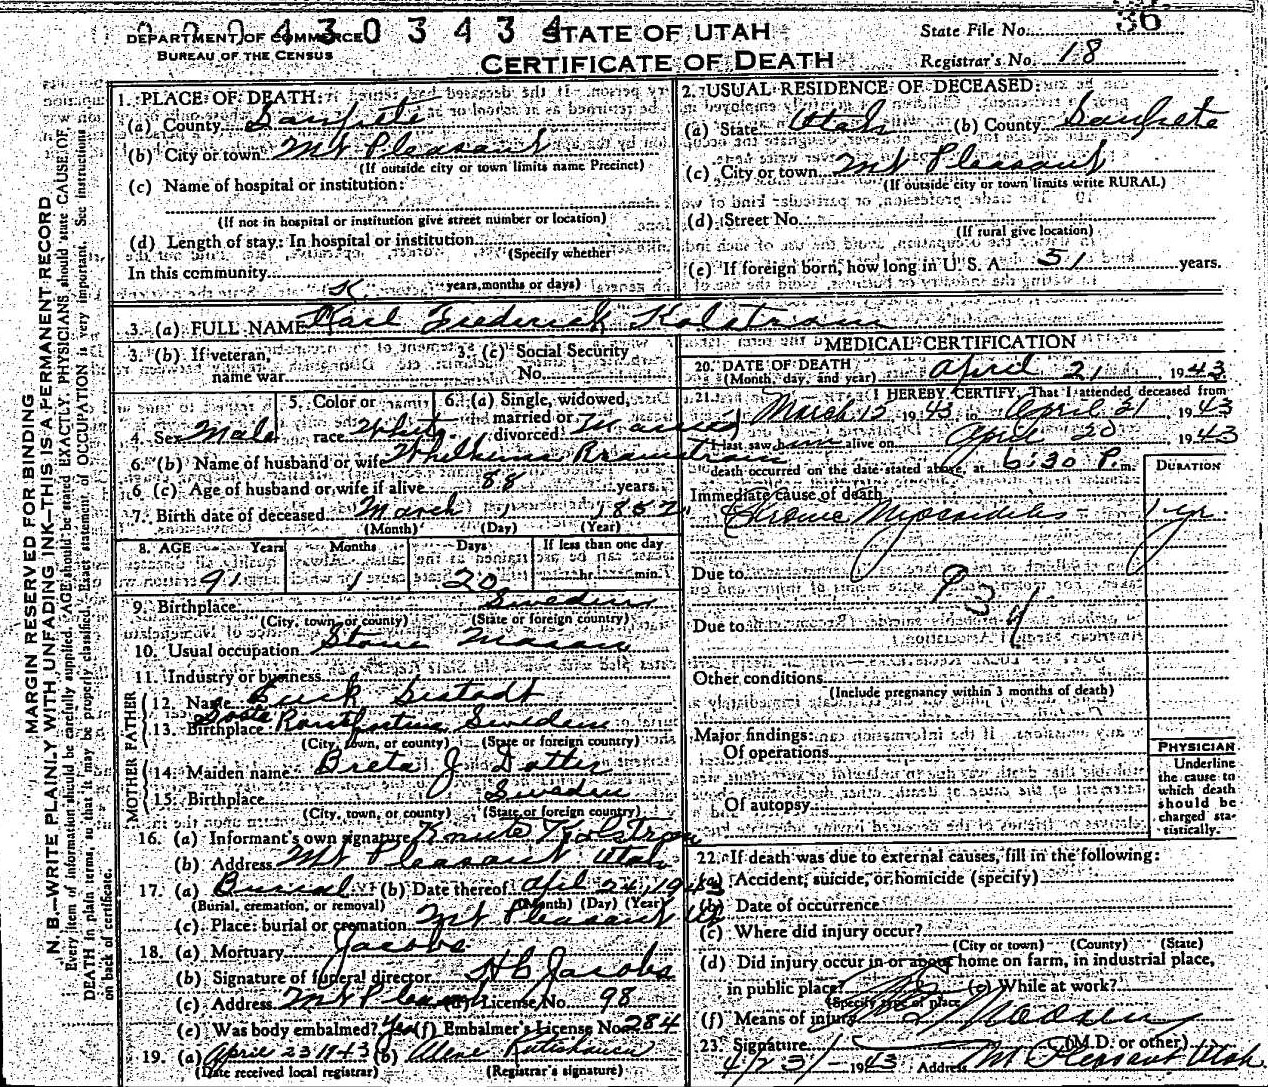 0004303434
36
DEPARTMENT OF COMMERCE
BUREAU OF THE CENSUS
STATE OF UTAH
CERTIFICATE OF DEATH
State File No.
Registrar's No. 18
MARGIN RESERVED FOR BINDING
N. B.—WRITE PLAINLY WITH UNFADING INK—THIS IS A PERMANENT RECORD
Every item of information should be carefully supplied. AGE should be stated EXACTLY. PHYSICIANS should state CAUSE OF
DEATH in plain terms, so that it may be properly classified. Exact statement of OCCUPATION is very important. See instructions
on back of certificate.
1. PLACE OF DEATH:
(a) County Sanpete
(b) City or town Mt Pleasant
(If outside city or town limits name Precinct)
(c) Name of hospital or institution:
(If not in hospital or institution give street number or location)
(d) Length of stay: In hospital or institution
(Specify whether
In this community
years, months or days)
2. USUAL RESIDENCE OF DECEASED:
(a) State Utah (b) County Sanpete
(c) City or town Mt Pleasant
(If outside city or town limits write RURAL)
(d) Street No.
(If rural give location)
(e) If foreign born, how long in U. S. A. 51 years.
3. (a) FULL NAME Karl Frederick Kolstrom
3. (b) If veteran,
name war
3. (c) Social Security
No.
4. Sex Male
5. Color or
race White
6. (a) Single, widowed,
married or
divorced Married
6. (b) Name of husband or wife
6 (c) Age of husband or wife if alive 88 years.
7. Birth date of deceased March 1 1852
(Month) (Day) (Year)
8. AGE Years Months Days If less than one day
91 1 20 hr. min.
9. Birthplace Sweden
(City, town, or county) (State or foreign country)
10. Usual occupation Stone Mason
11. Industry or business
FATHER
12. Name
13. Birthplace Sweden
(City, town, or county) (State or foreign country)
MOTHER
14. Maiden name Breta J Dotter
15. Birthplace Sweden
(City, town, or county) (State or foreign country)
16. (a) Informant's own signature Kolstrom
(b) Address Mt Pleasant Utah
17. (a) Burial (b) Date thereof April 24, 1943
(Burial, cremation, or removal) (Month) (Day) (Year)
(c) Place: burial or cremation Mt Pleasant Ut
18. (a) Mortuary Jacobs
(b) Signature of funeral director H C Jacobs
(c) Address Mt Pleasant (d) License No. 98
(e) Was body embalmed? Yes (f) Embalmer's License No. 284
19. (a) April 23 1943 (b)
(Date received local registrar) (Registrar's signature)
MEDICAL CERTIFICATION
20. DATE OF DEATH
(Month, day, and year) April 21, 1943
21. I HEREBY CERTIFY, That I attended deceased from
March 12 1943 to April 21, 1943
I last saw him alive on April 20 1943
death occurred on the date stated above, at 6:30 P. m.
DURATION
Immediate cause of death
Chronic Myocarditis - 1 yr.
Due to
934
Due to
Other conditions
(Include pregnancy within 3 months of death)
Major findings:
Of operations
Of autopsy
PHYSICIAN
Underline
the cause to
which death
should be
charged sta-
tistically.
22. If death was due to external causes, fill in the following:
(a) Accident, suicide, or homicide (specify)
(b) Date of occurrence
(c) Where did injury occur?
(City or town) (County) (State)
(d) Did injury occur in or about home on farm, in industrial place,
in public place? (e) While at work?
(Specify type of place
(f) Means of injury
23. Signature Madsen
(M.D. or other)
4/23/-1943 Address Mt Pleasant Utah